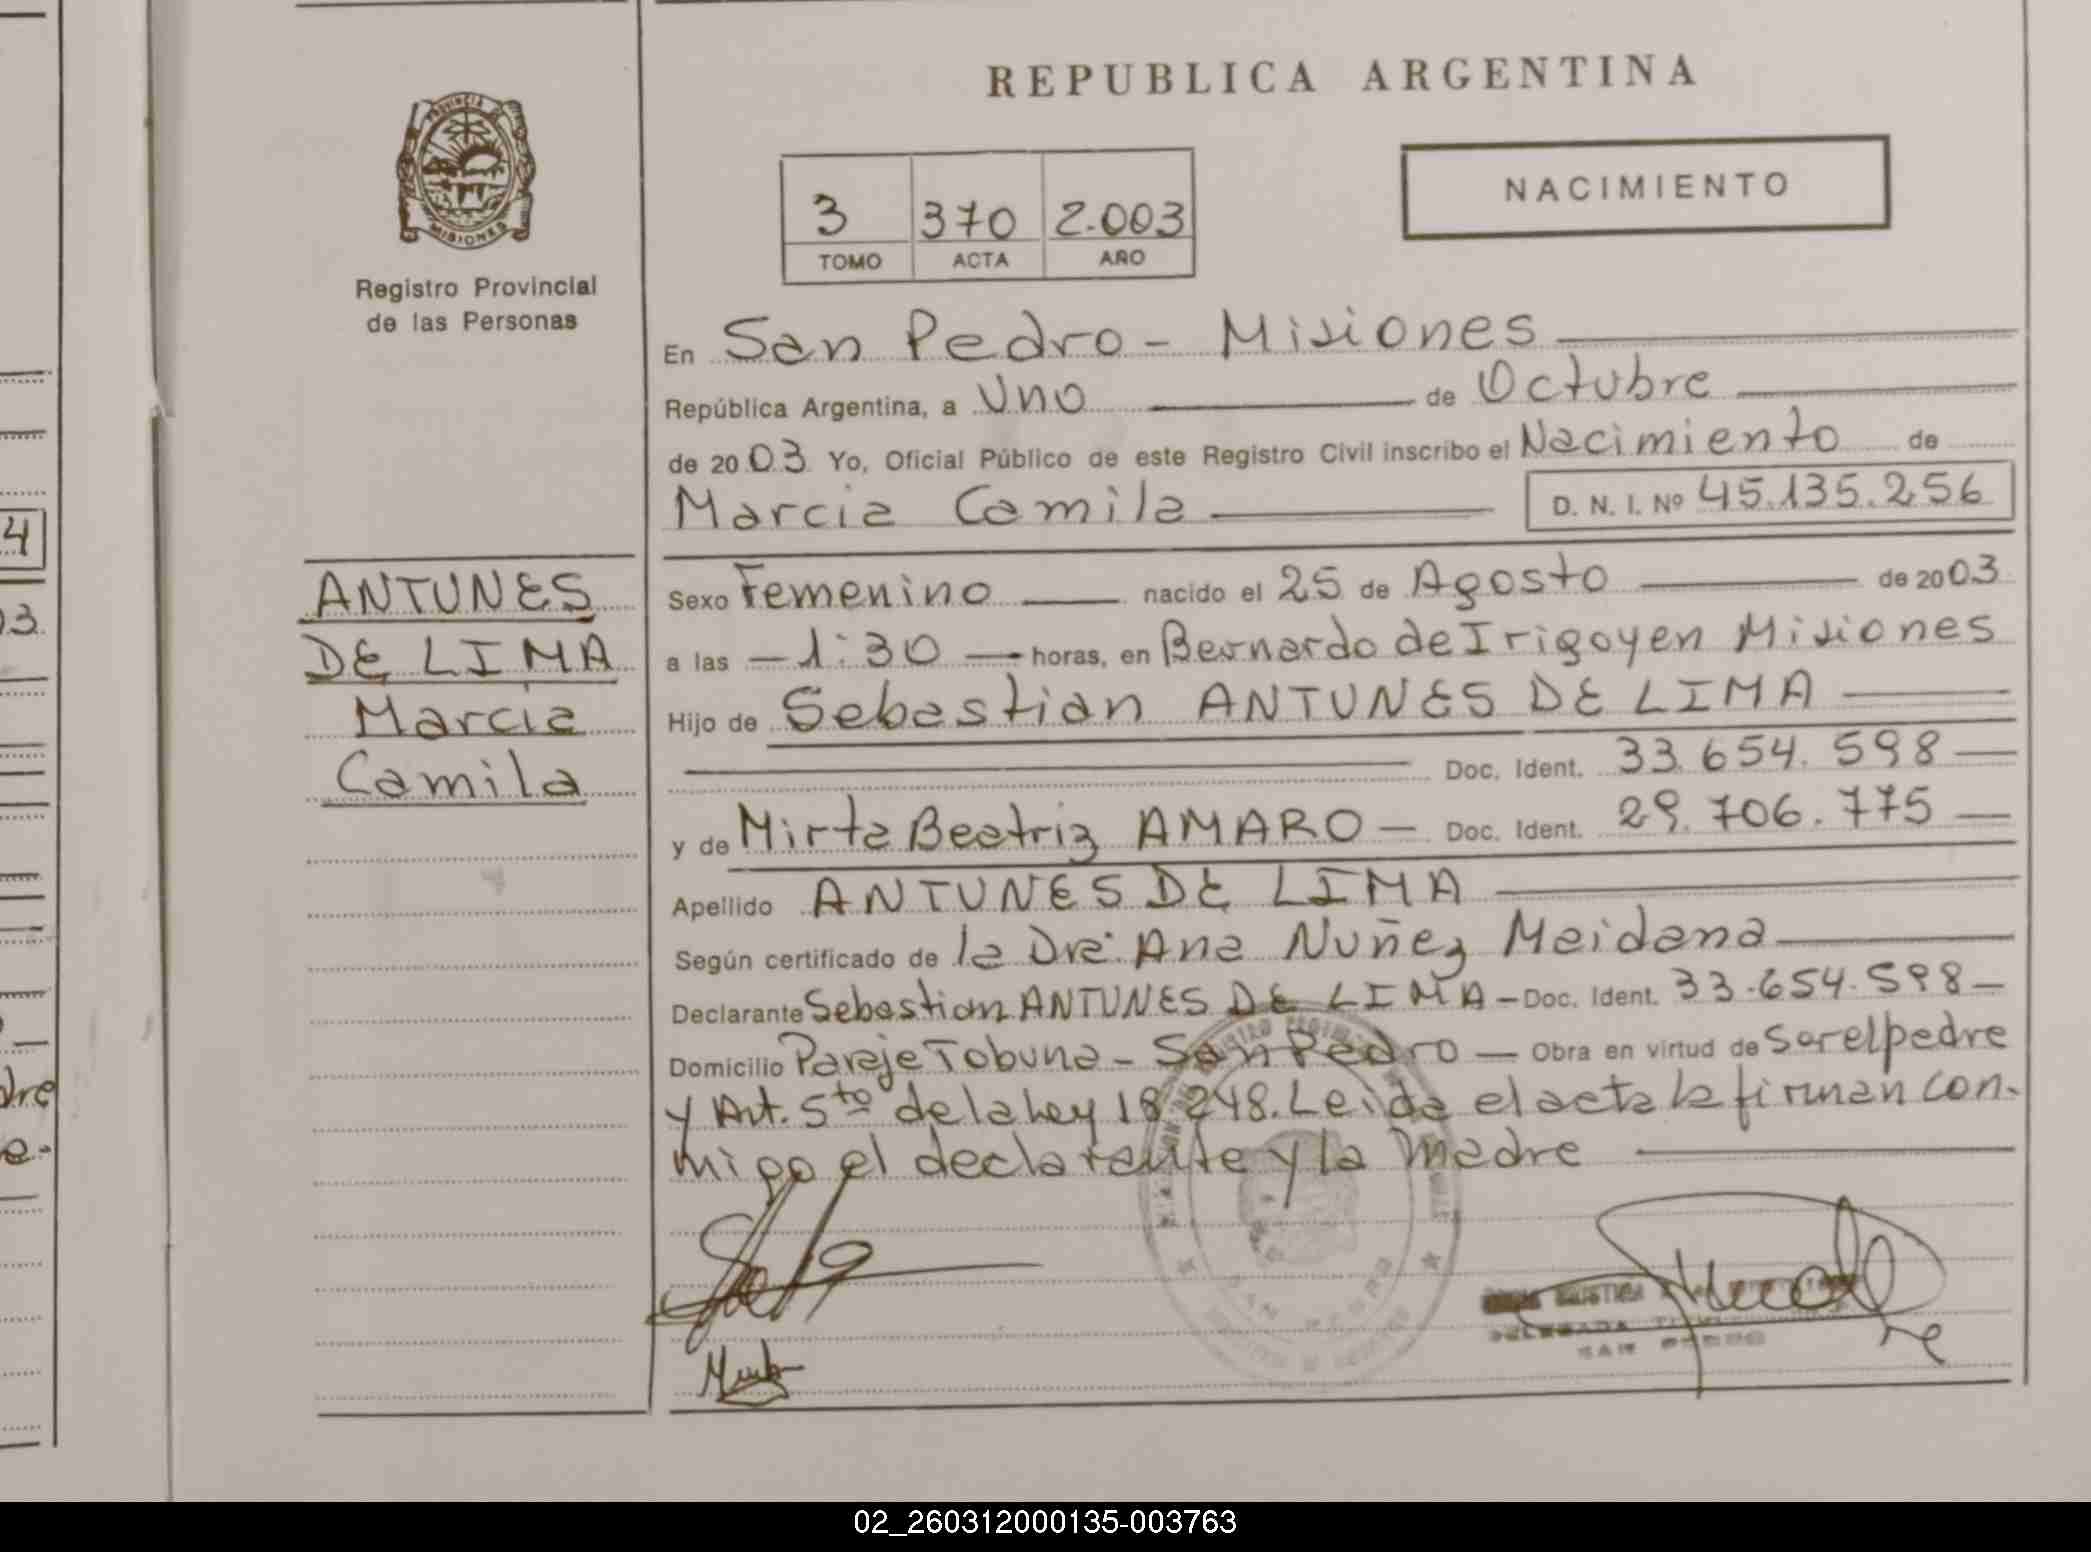 REPUBLICA ARGENTINA
NACIMIENTO
3 370 2.003
TOMO ACTA AÑO
PROVINCIA
MISIONES
Registro Provincial
de las Personas
En San Pedro - Misiones
República Argentina, a Uno de Octubre
de 2003 Yo, Oficial Público de este Registro Civil inscribo el Nacimiento de
Marcia Camila D. N. I. Nº 45.135.256
ANTUNES
DE LIMA
Marcia
Camila
Sexo Femenino nacido el 25 de Agosto de 2003
a las - 1:30 - horas, en Bernardo de Irigoyen Misiones
Hijo de Sebastian ANTUNES DE LIMA
Doc. Ident. 33.654.598
y de Mirta Beatriz AMARO - Doc. Ident. 29.706.775
Apellido ANTUNES DE LIMA
Según certificado de la Dra. Ana Nuñez Meidana
Declarante Sebastian ANTUNES DE LIMA - Doc. Ident. 33.654.598
Domicilio Paraje Tobuna - San Pedro - Obra en virtud de Ser el padre
y Art. 5to de la Ley 18.248. Leida el acta la firman con-
migo el declarante y la madre
DELEGADA
SAN PEDRO
SAN PEDRO
4
03
dre
e.
02_260312000135-003763